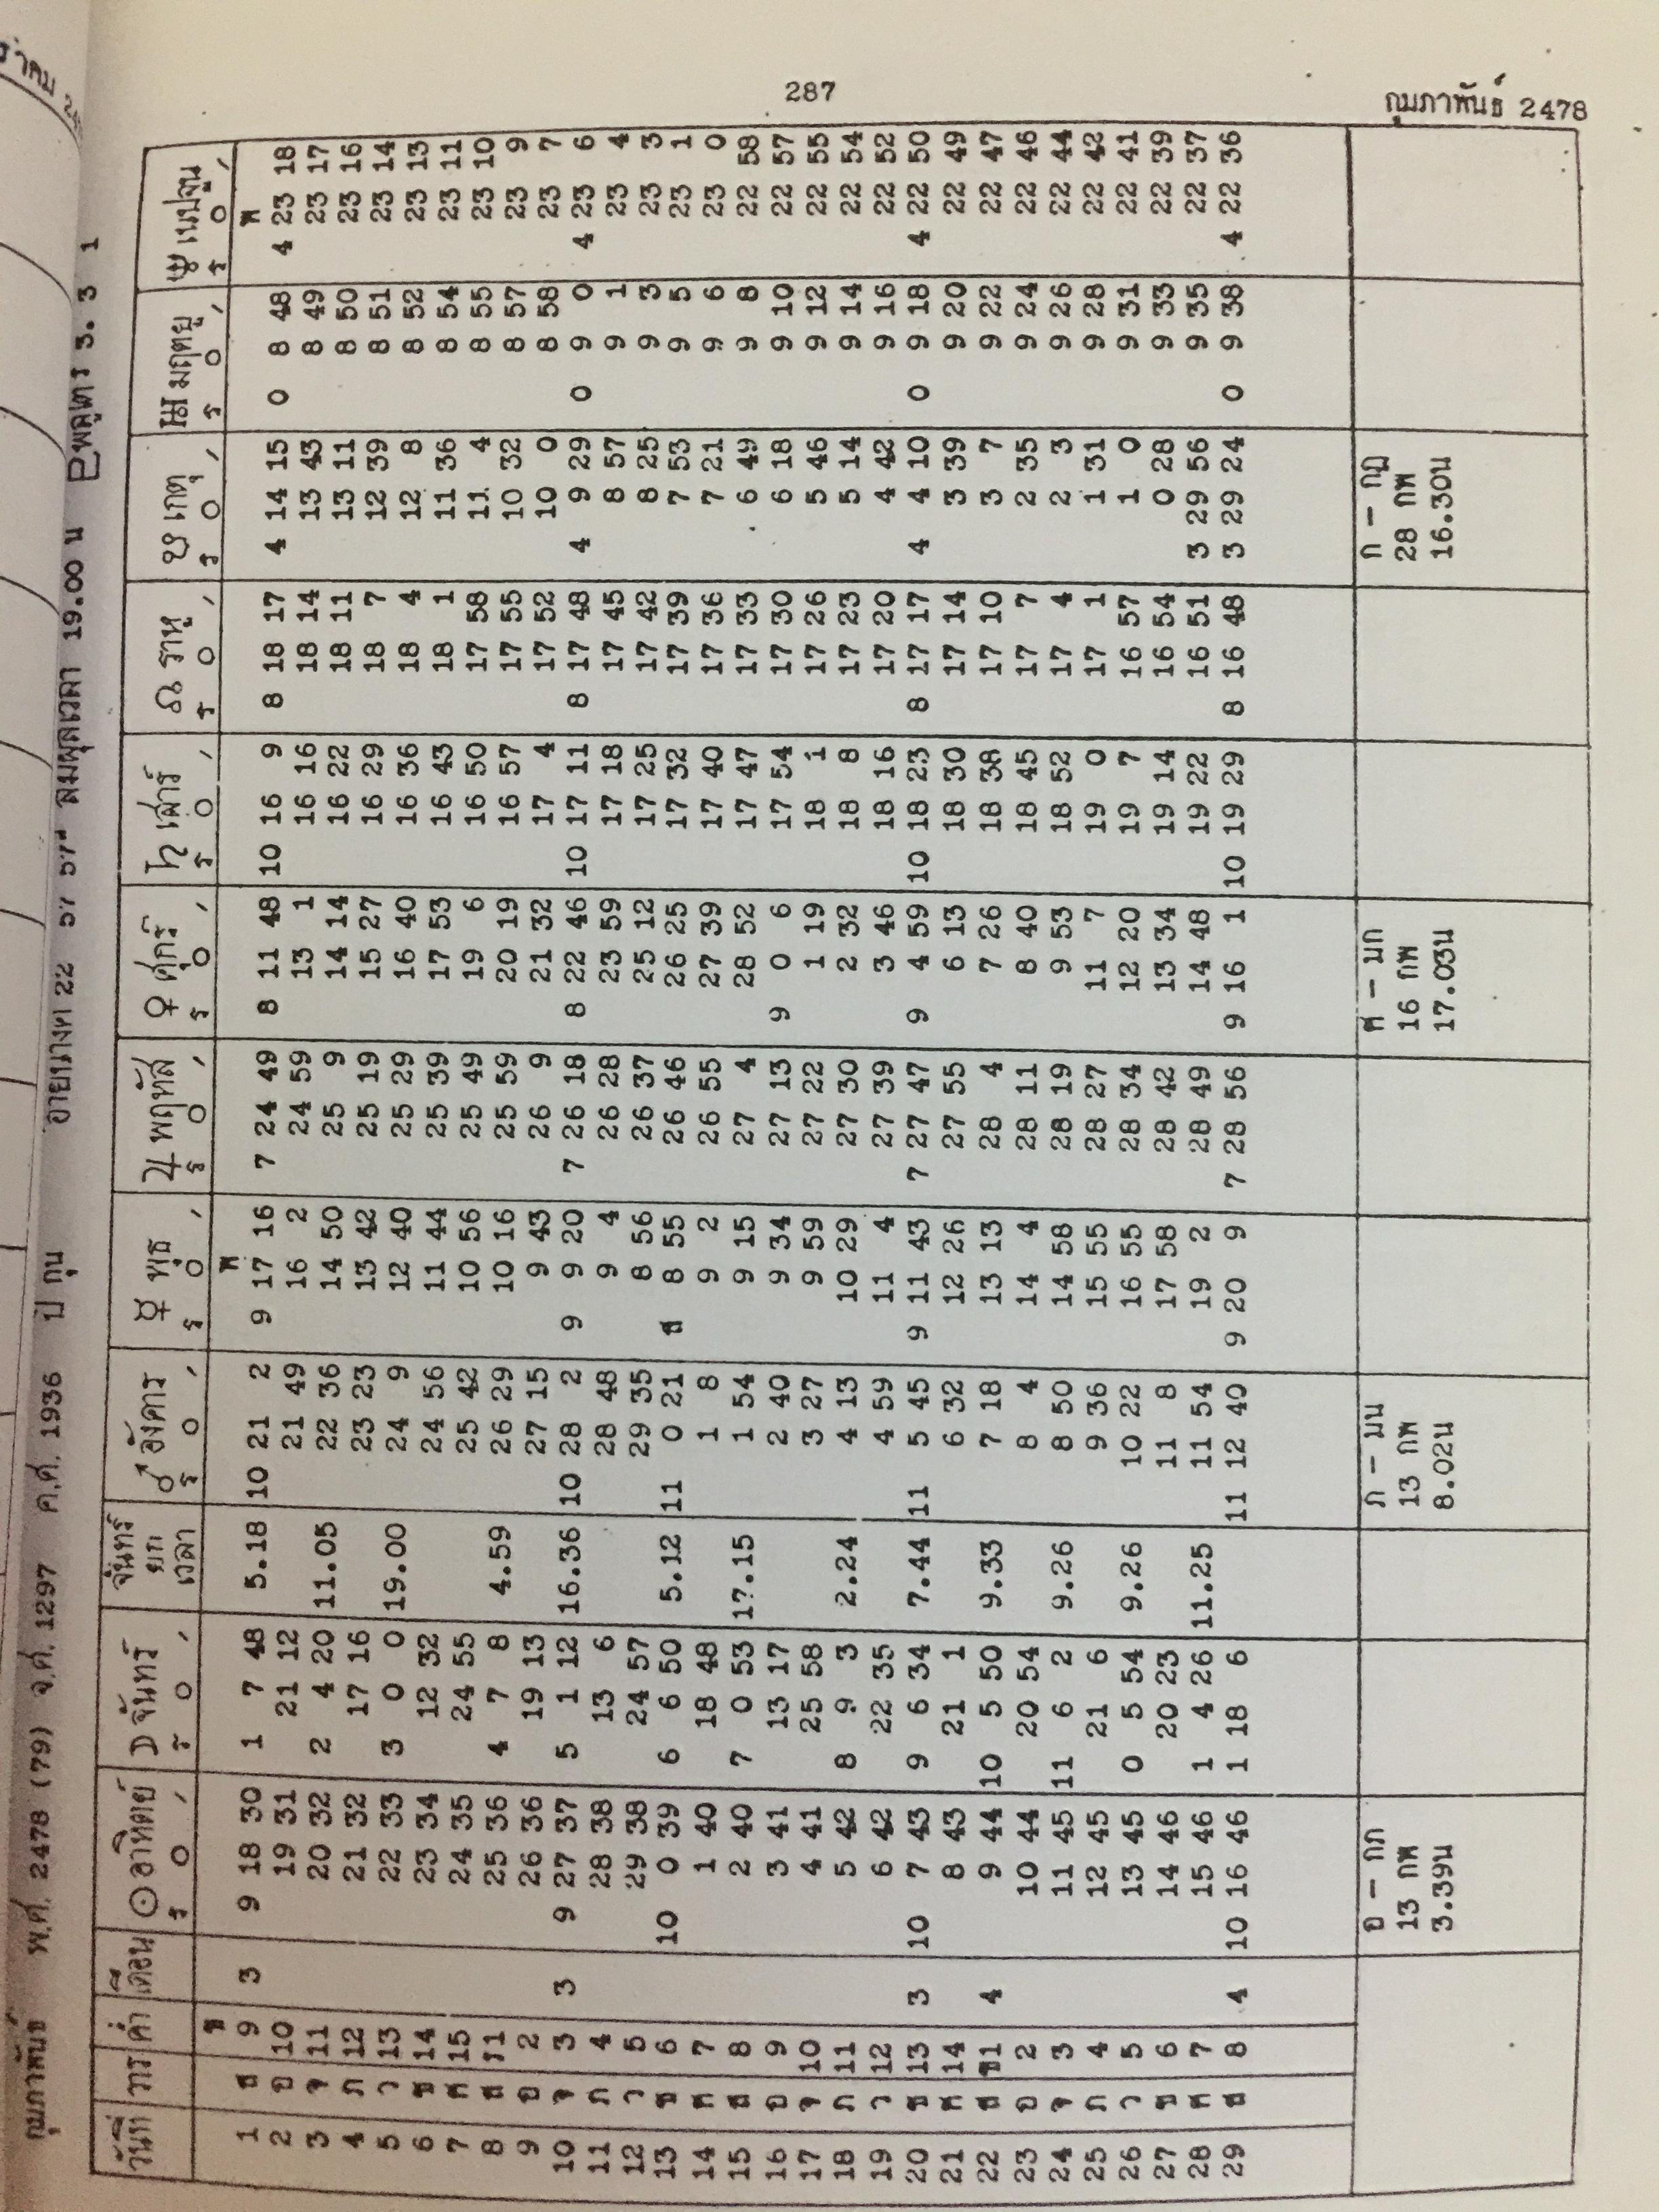 287
กุมภาพันธ์ 2478
กุมภาพันธ์ พ.ศ. 2478 (79) จ.ศ. 1297 ค.ศ. 1936 ปี กุน 19.00 น
วันที่ วาร ค่ำ เดือน ☉ อาทิตย์ ☽ จันทร์ จันทร์ ยก เวลา ♂ อังคาร ☿ พุธ ♃ พฤหัส ♀ ศุกร์ ♄ เสาร์ ☊ ราหู เกตุ มฤตยู ♆ เนปจูน
ร ° ' ร ° ' ร ° ' ร ° ' ร ° ' ร ° ' ร ° ' ร ° ' ร ° ' ร ° ' ร ° '
ข พ พ
1 ส 9 3 9 18 30 1 7 48 5.18 10 21 2 9 17 16 7 24 49 8 11 48 10 16 9 8 18 17 4 14 15 0 8 48 4 23 18
2 อ 10 19 31 21 12 21 49 16 2 24 59 13 1 16 16 18 14 13 43 8 49 23 17
3 จ 11 20 32 2 4 20 11.05 22 36 14 50 25 9 14 14 16 22 18 11 13 11 8 50 23 16
4 ภ 12 21 32 17 16 23 23 13 42 25 19 15 27 16 29 18 7 12 39 8 51 23 14
5 ว 13 22 33 3 0 0 19.00 24 9 12 40 25 29 16 40 16 36 18 4 12 8 8 52 23 13
6 ช 14 23 34 12 32 24 56 11 44 25 39 17 53 16 43 18 1 11 36 8 54 23 11
7 ศ 15 24 35 24 55 25 42 10 56 25 49 19 6 16 50 17 58 11 4 8 55 23 10
8 ส ร1 25 36 4 7 8 4.59 26 29 10 16 25 59 20 19 16 57 17 55 10 32 8 57 23 9
9 อ 2 26 36 19 13 27 15 9 43 26 9 21 32 17 4 17 52 10 0 8 58 23 7
10 จ 3 3 9 27 37 5 1 12 16.36 10 28 2 9 9 20 7 26 18 8 22 46 10 17 11 8 17 48 4 9 29 0 9 0 4 23 6
11 ภ 4 28 38 13 6 28 48 9 4 26 28 23 59 17 18 17 45 8 57 9 1 23 4
12 ว 5 29 38 24 57 29 35 8 56 26 37 25 12 17 25 17 42 8 25 9 3 23 3
13 ช 6 10 0 39 6 6 50 5.12 11 0 21 ส 8 55 26 46 26 25 17 32 17 39 7 53 9 5 23 1
14 ศ 7 1 40 18 48 1 8 9 2 26 55 27 39 17 40 17 36 7 21 9 6 23 0
15 ส 8 2 40 7 0 53 17.15 1 54 9 15 27 4 28 52 17 47 17 33 6 49 9 8 22 58
16 อ 9 3 41 13 17 2 40 9 34 27 13 9 0 6 17 54 17 30 6 18 9 10 22 57
17 จ 10 4 41 25 58 3 27 9 59 27 22 1 19 18 1 17 26 5 46 9 12 22 55
18 ภ 11 5 42 8 9 3 2.24 4 13 10 29 27 30 2 32 18 8 17 23 5 14 9 14 22 54
19 ว 12 6 42 22 35 4 59 11 4 27 39 3 46 18 16 17 20 4 42 9 16 22 52
20 ช 13 3 10 7 43 9 6 34 7.44 11 5 45 9 11 43 7 27 47 9 4 59 10 18 23 8 17 17 4 4 10 0 9 18 4 22 50
21 ศ 14 8 43 21 1 6 32 12 26 27 55 6 13 18 30 17 14 3 39 9 20 22 49
22 ส ข1 4 9 44 10 5 50 9.33 7 18 13 13 28 4 7 26 18 38 17 10 3 7 9 22 22 47
23 อ 2 10 44 20 54 8 4 14 4 28 11 8 40 18 45 17 7 2 35 9 24 22 46
24 จ 3 11 45 11 6 2 9.26 8 50 14 58 28 19 9 53 18 52 17 4 2 3 9 26 22 44
25 ภ 4 12 45 21 6 9 36 15 55 28 27 11 7 19 0 17 1 1 31 9 28 22 42
26 ว 5 13 45 0 5 54 9.26 10 22 16 55 28 34 12 20 19 7 16 57 1 0 9 31 22 41
27 ช 6 14 46 20 23 11 8 17 58 28 42 13 34 19 14 16 54 0 28 9 33 22 39
28 ศ 7 15 46 1 4 26 11.25 11 54 19 2 28 49 14 48 19 22 16 51 3 29 56 9 35 22 37
29 ส 8 4 10 16 46 1 18 6 11 12 40 9 20 9 7 28 56 9 16 1 10 19 29 8 16 48 3 29 24 0 9 38 4 22 36
อ – กภ ภ – มน ศ – มก ก – กฎ
13 กพ 13 กพ 16 กพ 28 กพ
3.39น 8.02น 17.03น 16.30น